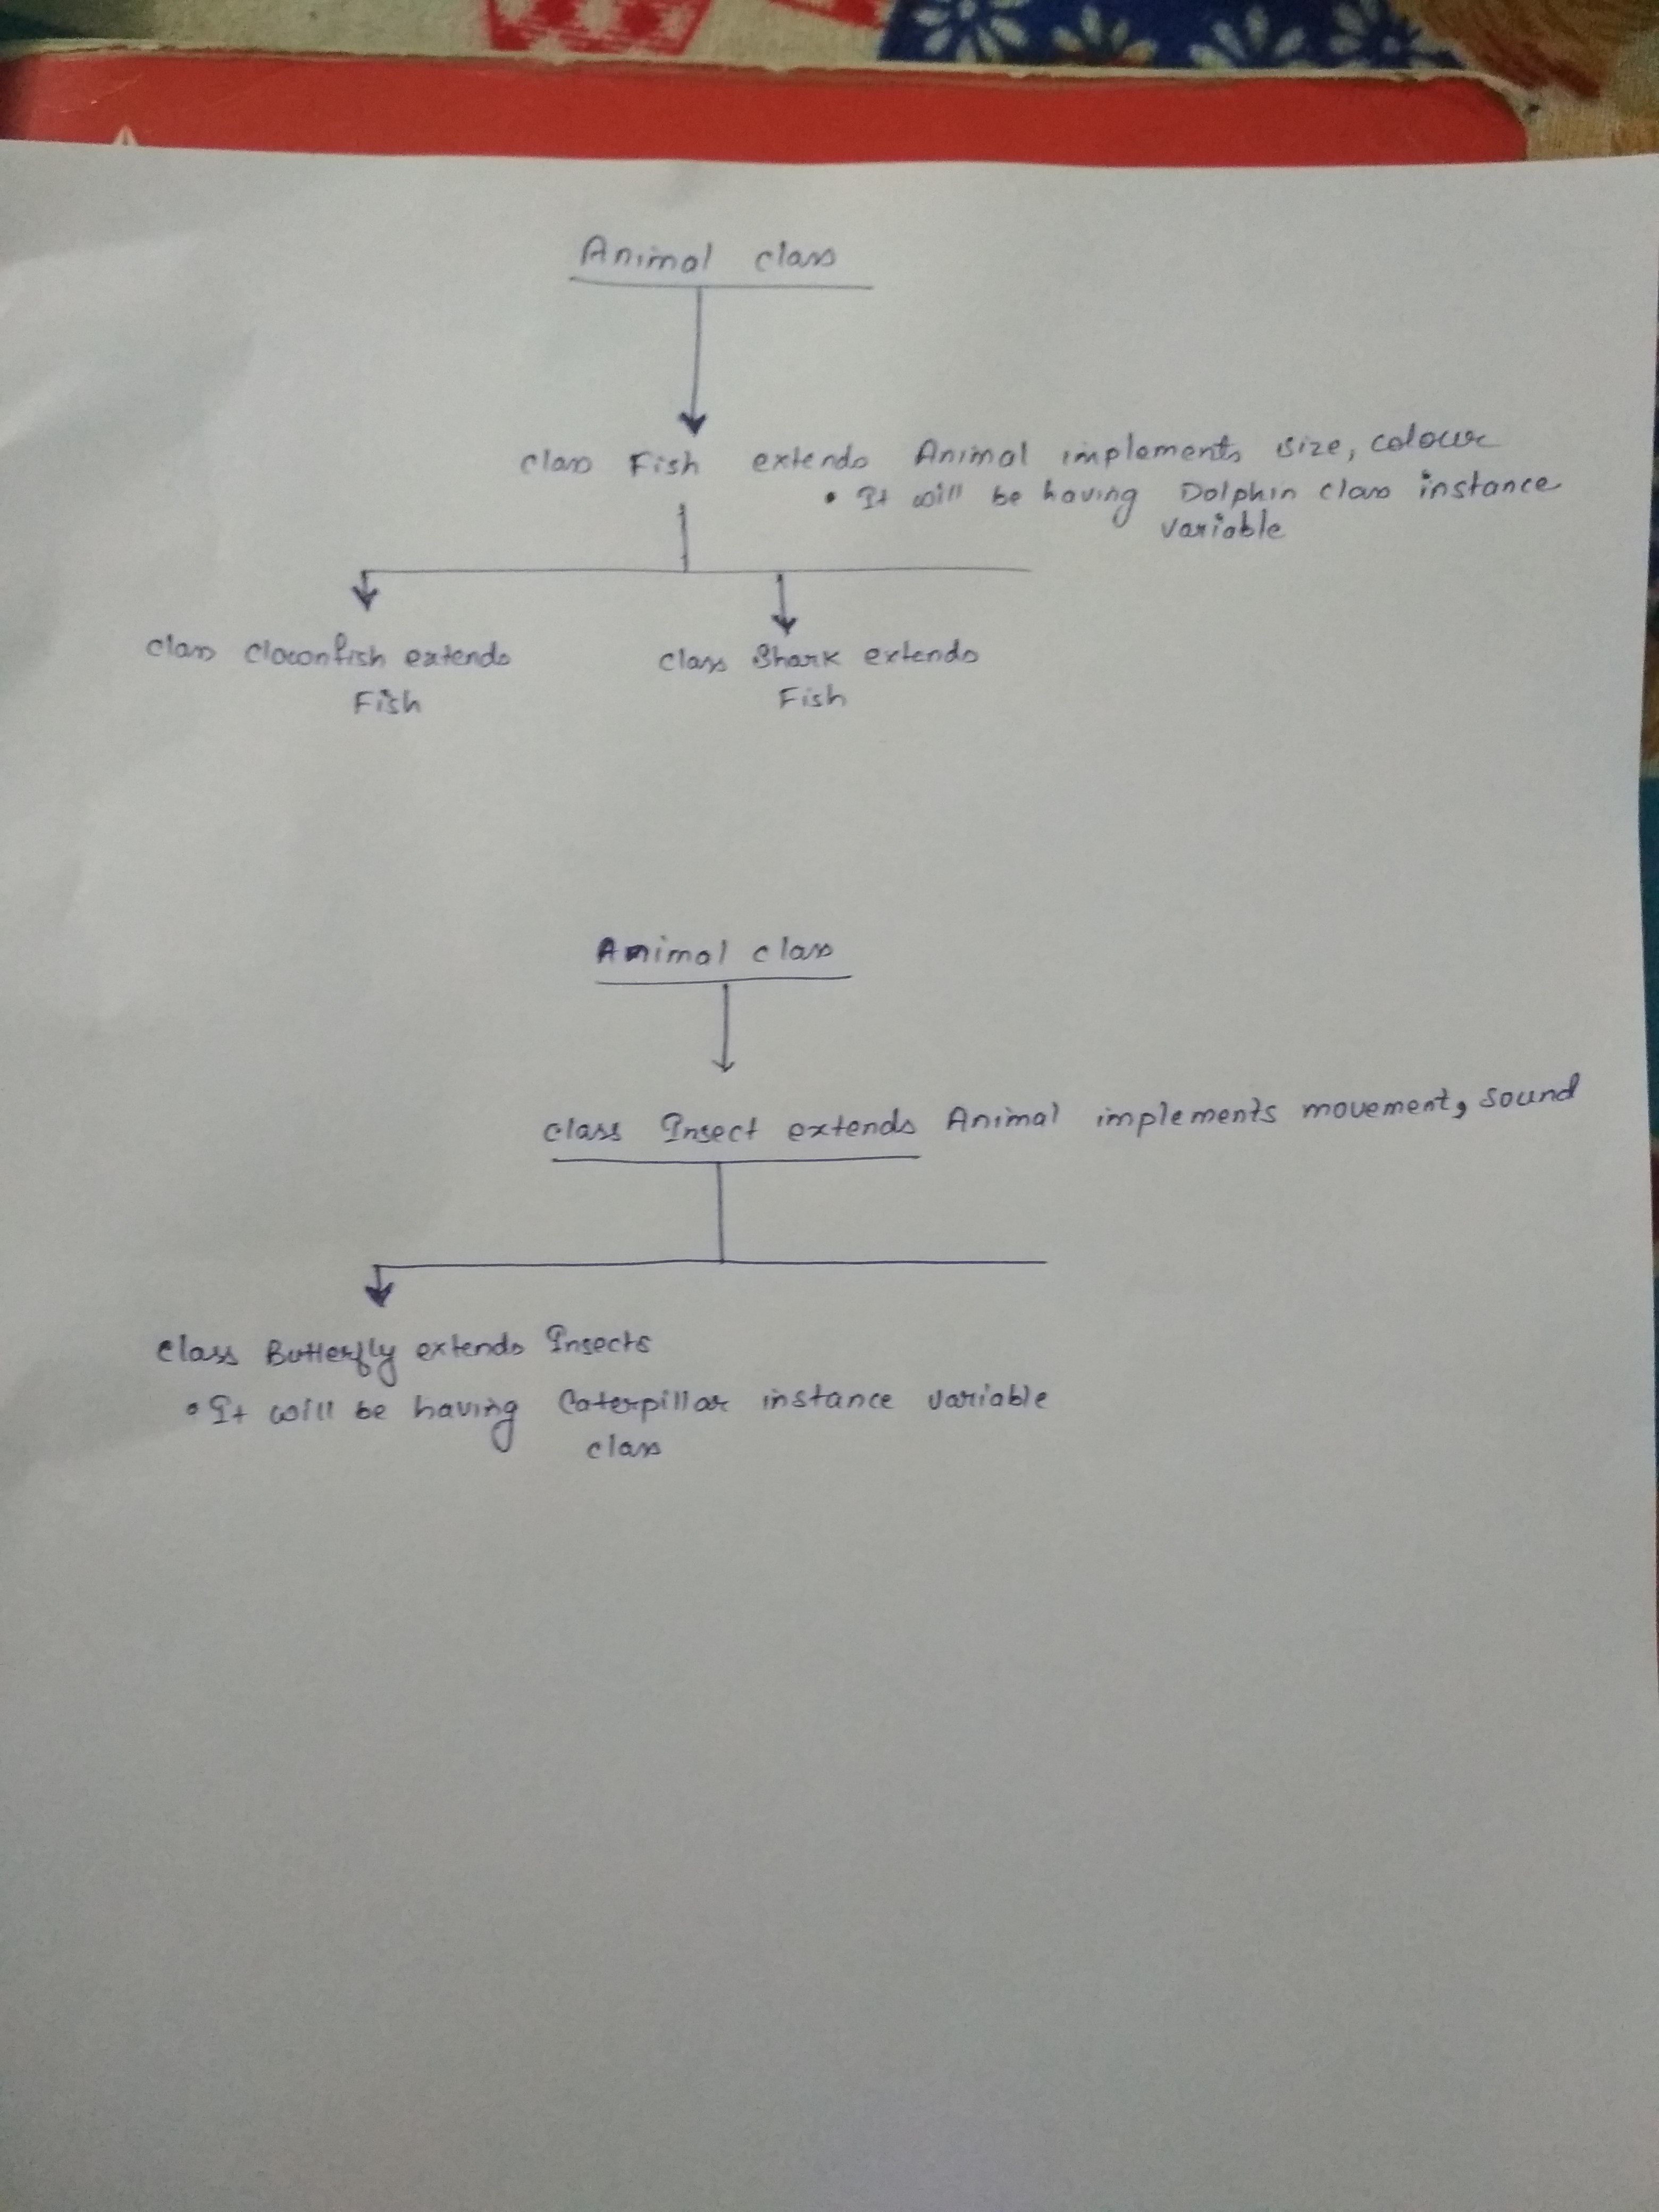 Animal class
class Fish extends Animal implements size, colour
• It will be having Dolphin class instance
variable
class Clownfish extends
Fish
class Shark extends
Fish
Animal class
class Insect extends Animal implements movement, sound
class Butterfly extends Insects
• It will be having Caterpillar instance variable
class